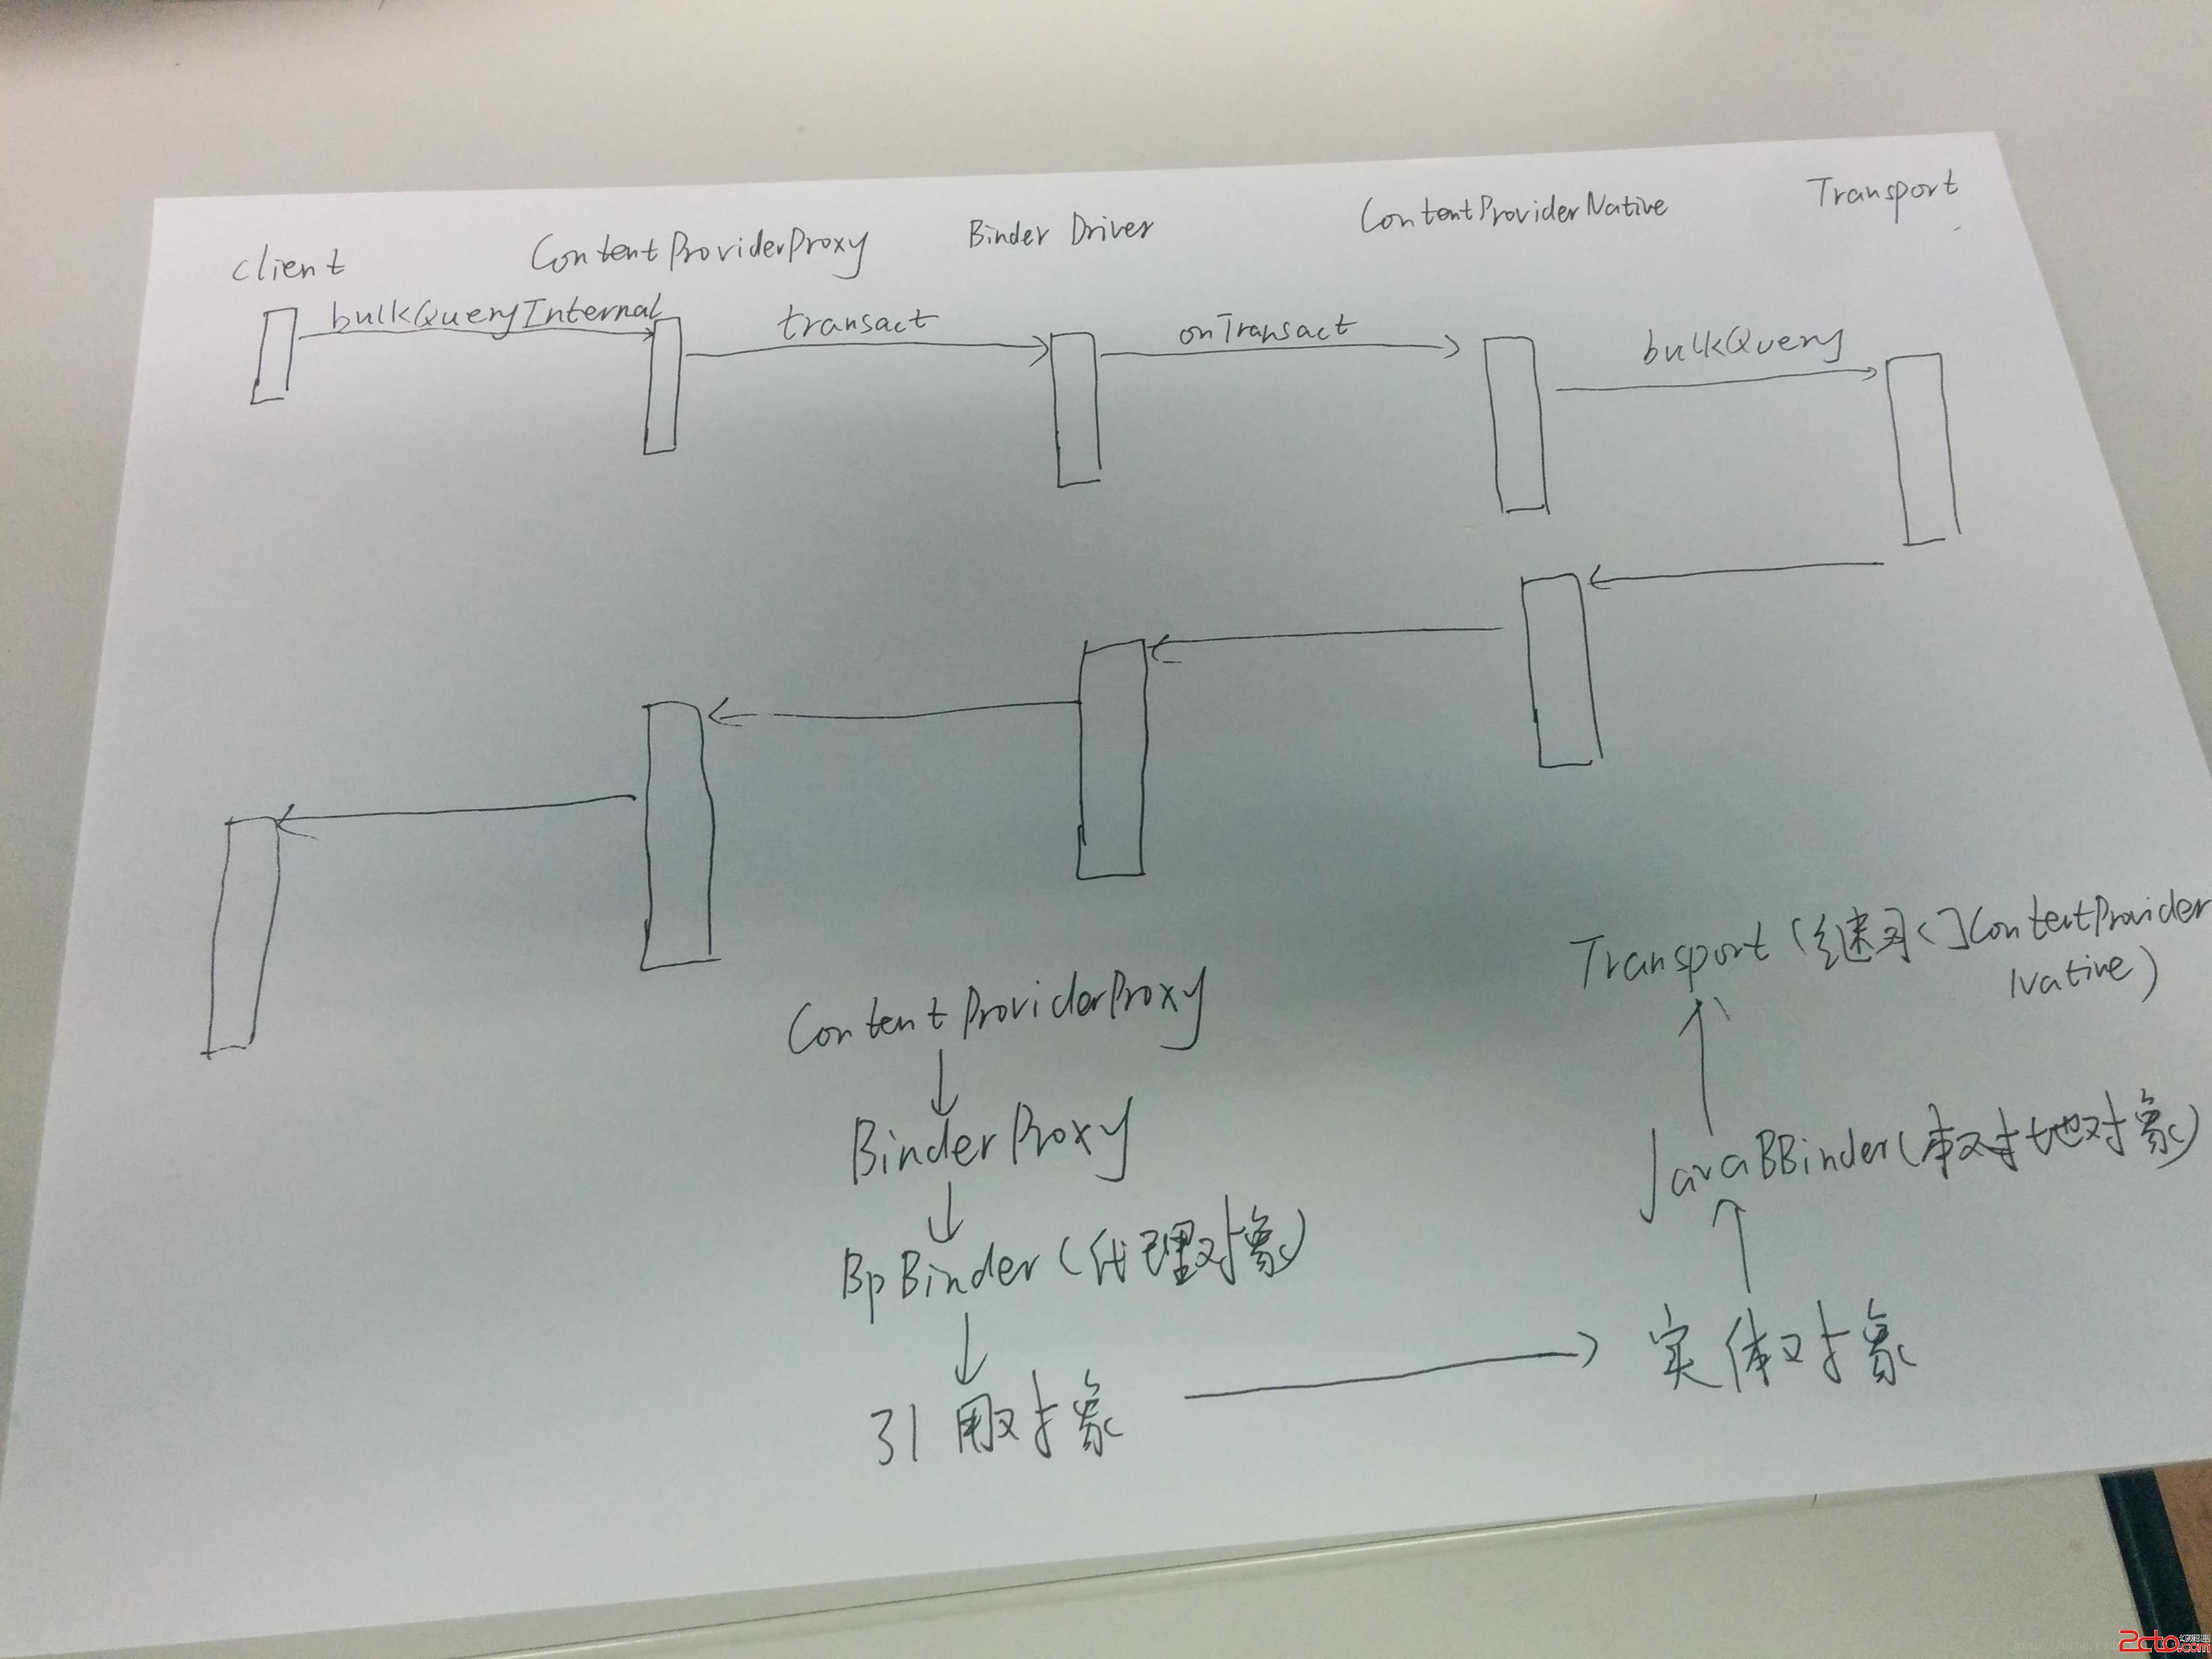 client
ContentProviderProxy
Binder Driver
ContentProviderNative
Transport
bulkQueryInternal
transact
onTransact
bulkQuery
ContentProviderProxy
BinderProxy
BpBinder (代理对象)
引用对象
实体对象
JavaBBinder (本地对象)
Transport (继承自ContentProvider
Native)
2cto
.com